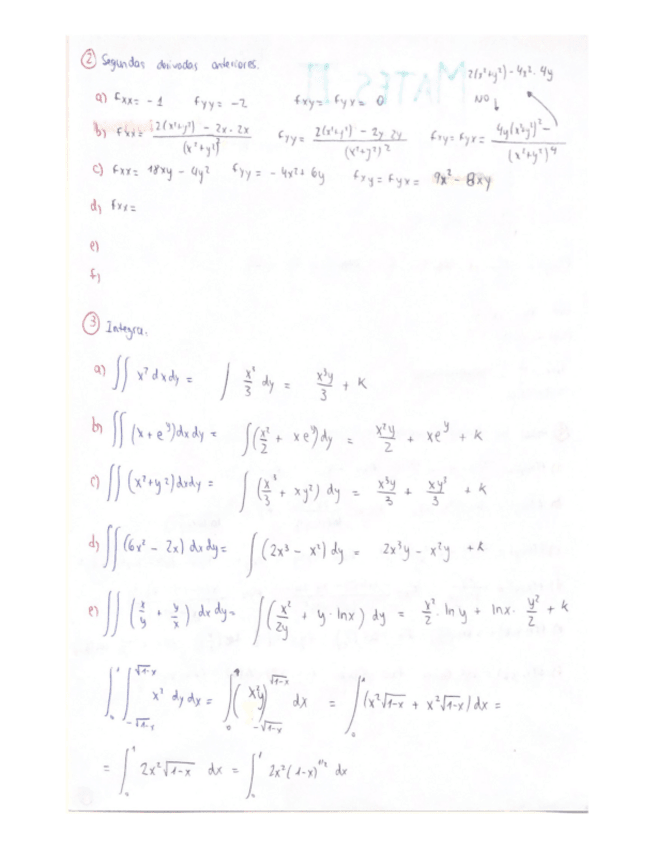 ② Segundas derivadas anteriores.
2(x²+y²) - 4x². 4y
NO ↓
a) fxx = -1 fyy = -2 fxy = fyx = 0
b) fxx = (2(x²+y²) - 2x·2x)/(x²+y²)² fyy = (2(x²+y²) - 2y 2y)/(x²+y²)² fxy = fyx = (4y(x²+y²)² -)/(x²+y²)⁴
c) fxx = 18xy - 4y² fyy = - 4x² + 6y fxy = fyx = 9x² - 8xy
d) fxx =
e)
f)
③ Integra.
a) ∬ x² dx dy = ∫ x³/3 dy = x³y/3 + K
b) ∬ (x + e^y) dx dy = ∫ (x²/2 + xe^y) dy = x²y/2 + xe^y + K
c) ∬ (x² + y²) dx dy = ∫ (x³/3 + xy²) dy = x³y/3 + xy³/3 + K
d) ∬ (6x² - 2x) dx dy = ∫ (2x³ - x²) dy = 2x³y - x²y + K
e) ∬ (x/y + y/x) dx dy = ∫ (x²/2y + y·lnx) dy = x²/2 · ln y + lnx · y²/2 + K
∫₀¹ ∫_{-√1-x}^{√1-x} x² dy dx = ∫₀¹ (x²y)_{-√1-x}^{√1-x} dx = ∫₀¹ (x²√1-x + x²√1-x) dx =
= ∫₀¹ 2x²√1-x dx = ∫₀¹ 2x²(1-x)^{1/2} dx